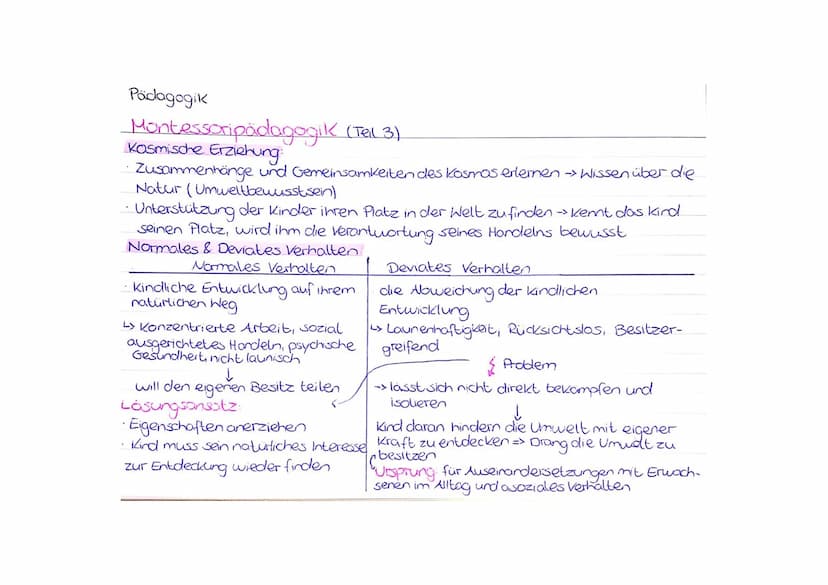 Pädagogik
Montessoripädagogik (Teil 3)
Kosmische Erziehung:
· Zusammenhänge und Gemeinsamkeiten des Kosmos erlernen → Wissen über die
Natur (Umweltbewusstsein)
· Unterstützung der Kinder ihren Platz in der Welt zu finden → kennt das Kind
seinen Platz, wird ihm die Verantwortung seines Handelns bewusst
Normales & Deviates Verhalten:
Normales Verhalten
· Kindliche Entwicklung auf ihrem
natürlichen Weg
↳ Konzentrierte Arbeit, sozial
ausgerichtetes Handeln, psychische
Gesundheit, nicht launisch
↓
will den eigenen Besitz teilen
Lösungsansatz:
· Eigenschaften anerziehen
· Kind muss sein natürliches Interesse
zur Entdeckung wieder finden
Deviates Verhalten
die Abweichung der kindlichen
Entwicklung
↳ Launenhaftigkeit, Rücksichtslos, Besitzer-
greifend
Problem
→ lässt sich nicht direkt bekämpfen und
isolieren
↓
Kind daran hindern die Umwelt mit eigener
Kraft zu entdecken => Drang die Umwelt zu
besitzen
Ursprung für Auseinandersetzungen mit Erwach-
senen im Alltag und asoziales Verhalten